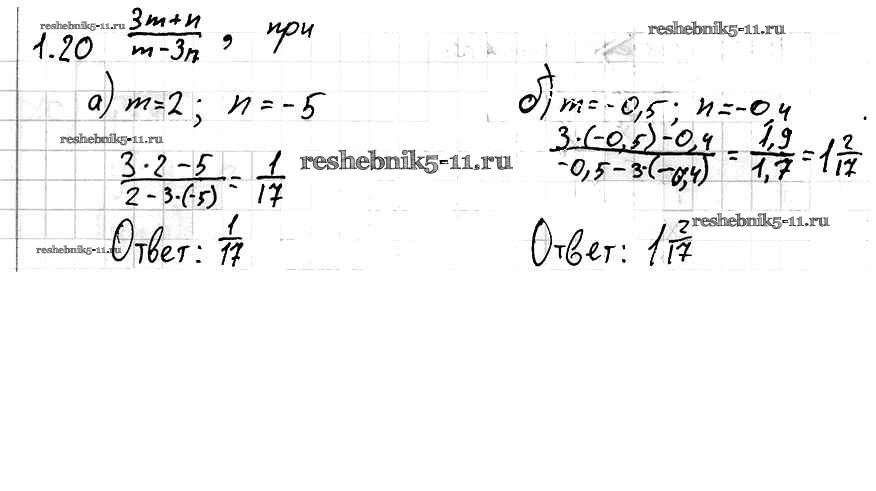 reshebnik5-11.ru
1.20 (3m+n)/(m-3n), при
reshebnik5-11.ru
а) m=2; n=-5
reshebnik5-11.ru
(3·2-5)/(2-3·(-5)) = 1/17
reshebnik5-11.ru
Ответ: 1/17
reshebnik5-11.ru
б) m=-0,5; n=-0,4
(3·(-0,5)-0,4)/(-0,5-3·(-0,4)) = 1,9/1,7 = 1 2/17
reshebnik5-11.ru
Ответ: 1 2/17